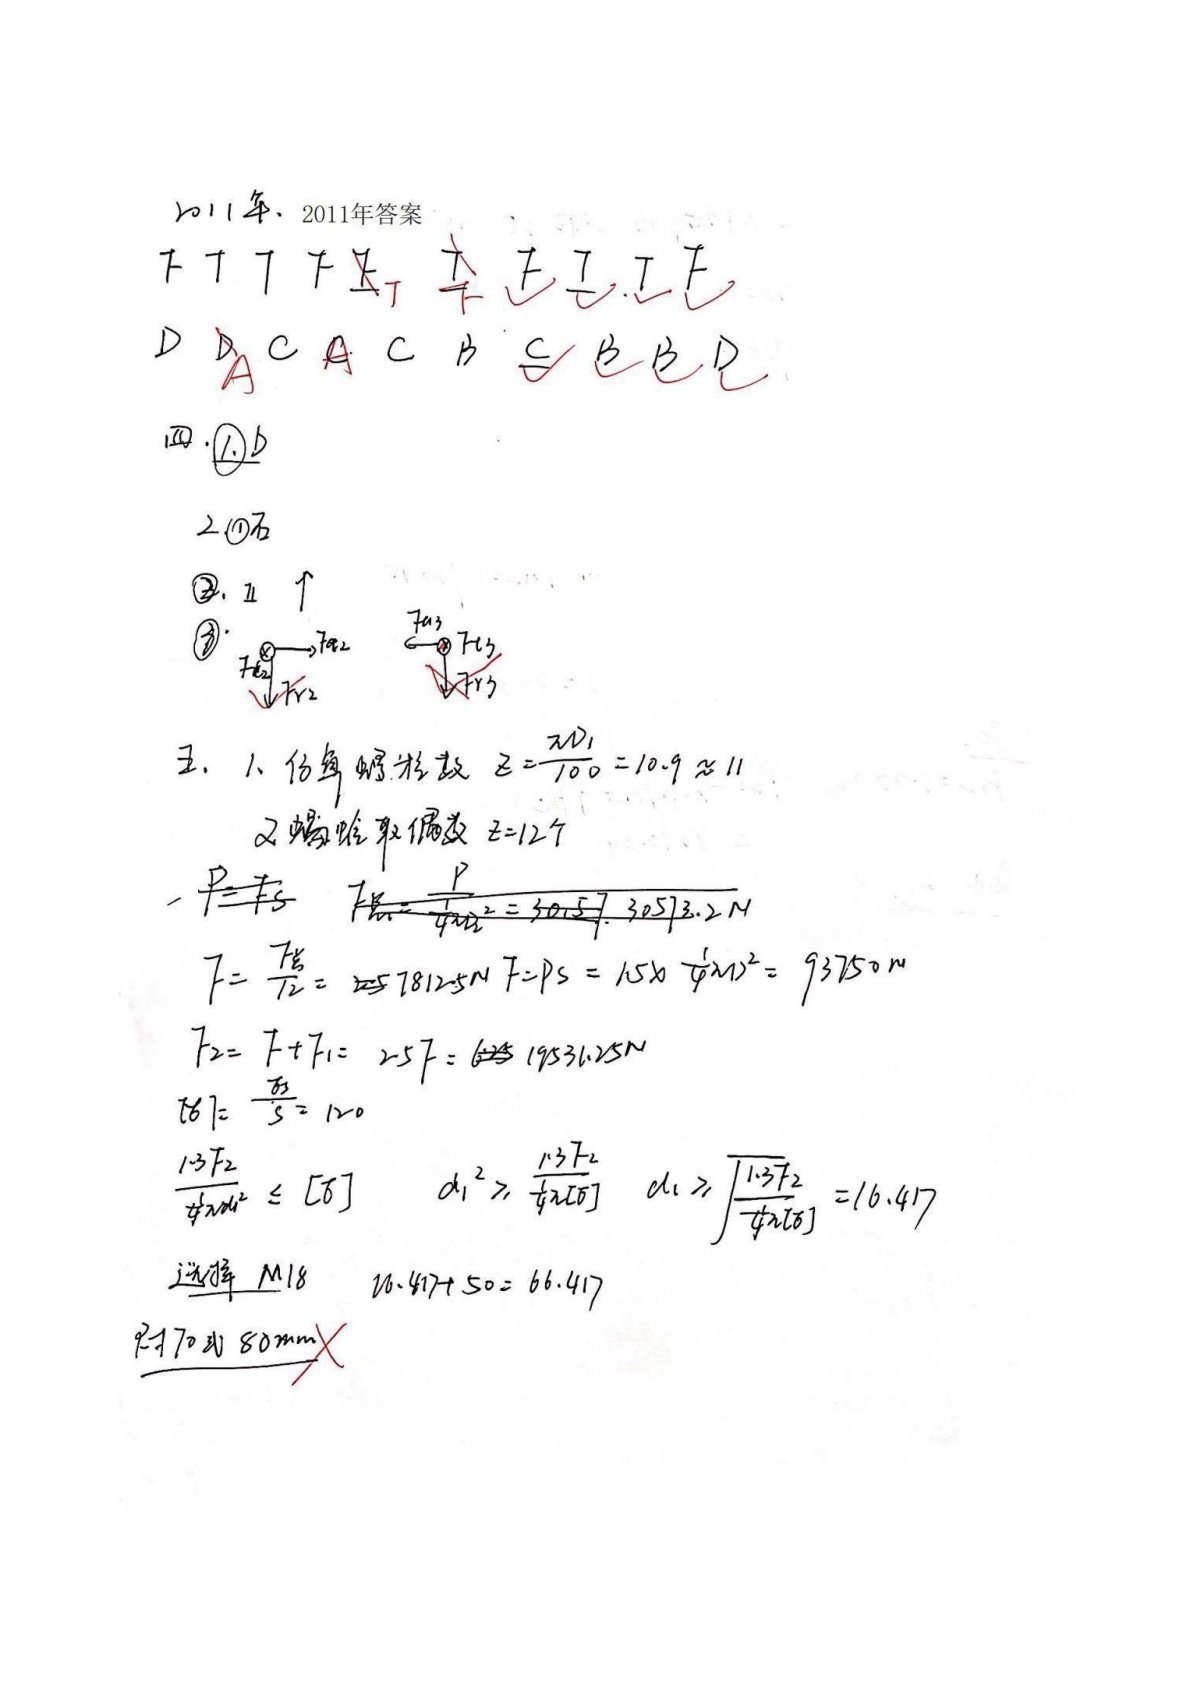 2011年. 2011年答案
F T T F F T T F F T T F
D D A C A C B C B B D
四.①.D
2.①右
②. II ↑
③. Fa2 Ft2 Fr2 Fa3 Ft3 Fr3
五. 1. 螺栓数 Z=πD1/100=10.9≈11
又螺栓取偶数 Z=12个
P=FS F总=P/(1/4πD²)=30.57. 30573.2N
F=F总/12=7812.5N F=PS=1.5×1/4πD²=93750N
F2=F+F1=2.5F=19531.25N
[σ]=σs/S=120
1.3F2/(1/4πd1²)≤[σ] d1²≥1.3F2/(1/4π[σ]) d1≥√(1.3F2/(1/4π[σ]))=16.417
选择 M18 16.417+50=66.417
70或80mm